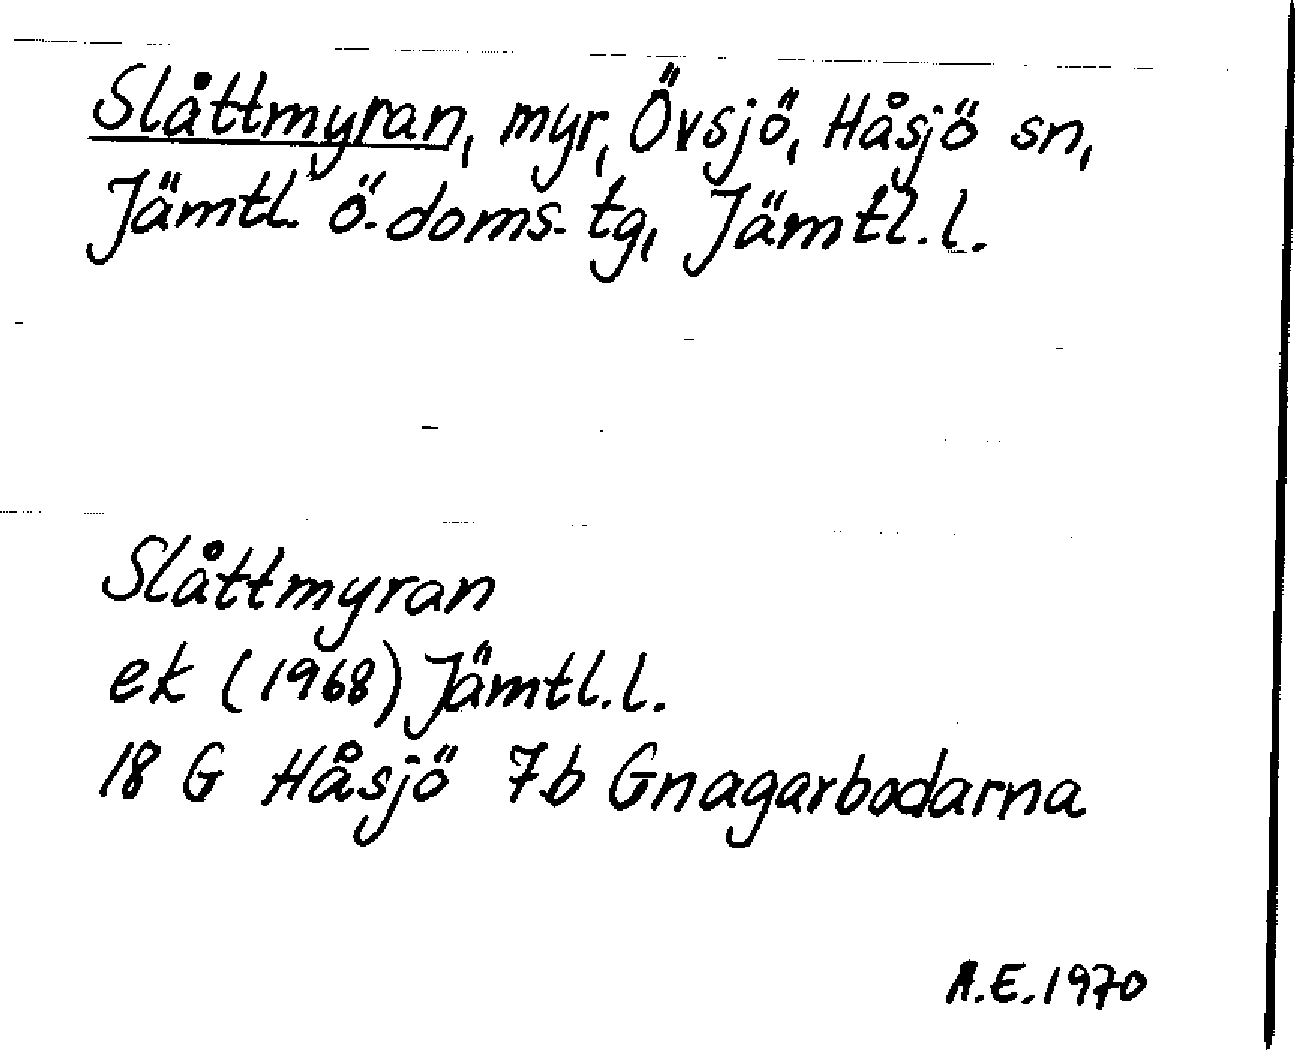 Slåttmyran, myr, Övsjö, Håsjö sn,
Jämtl. ö. doms. tg, Jämtl. l.
Slåttmyran
ek (1968) Jämtl. l.
18 G Håsjö 7b Gnagarbodarna
A.E. 1970